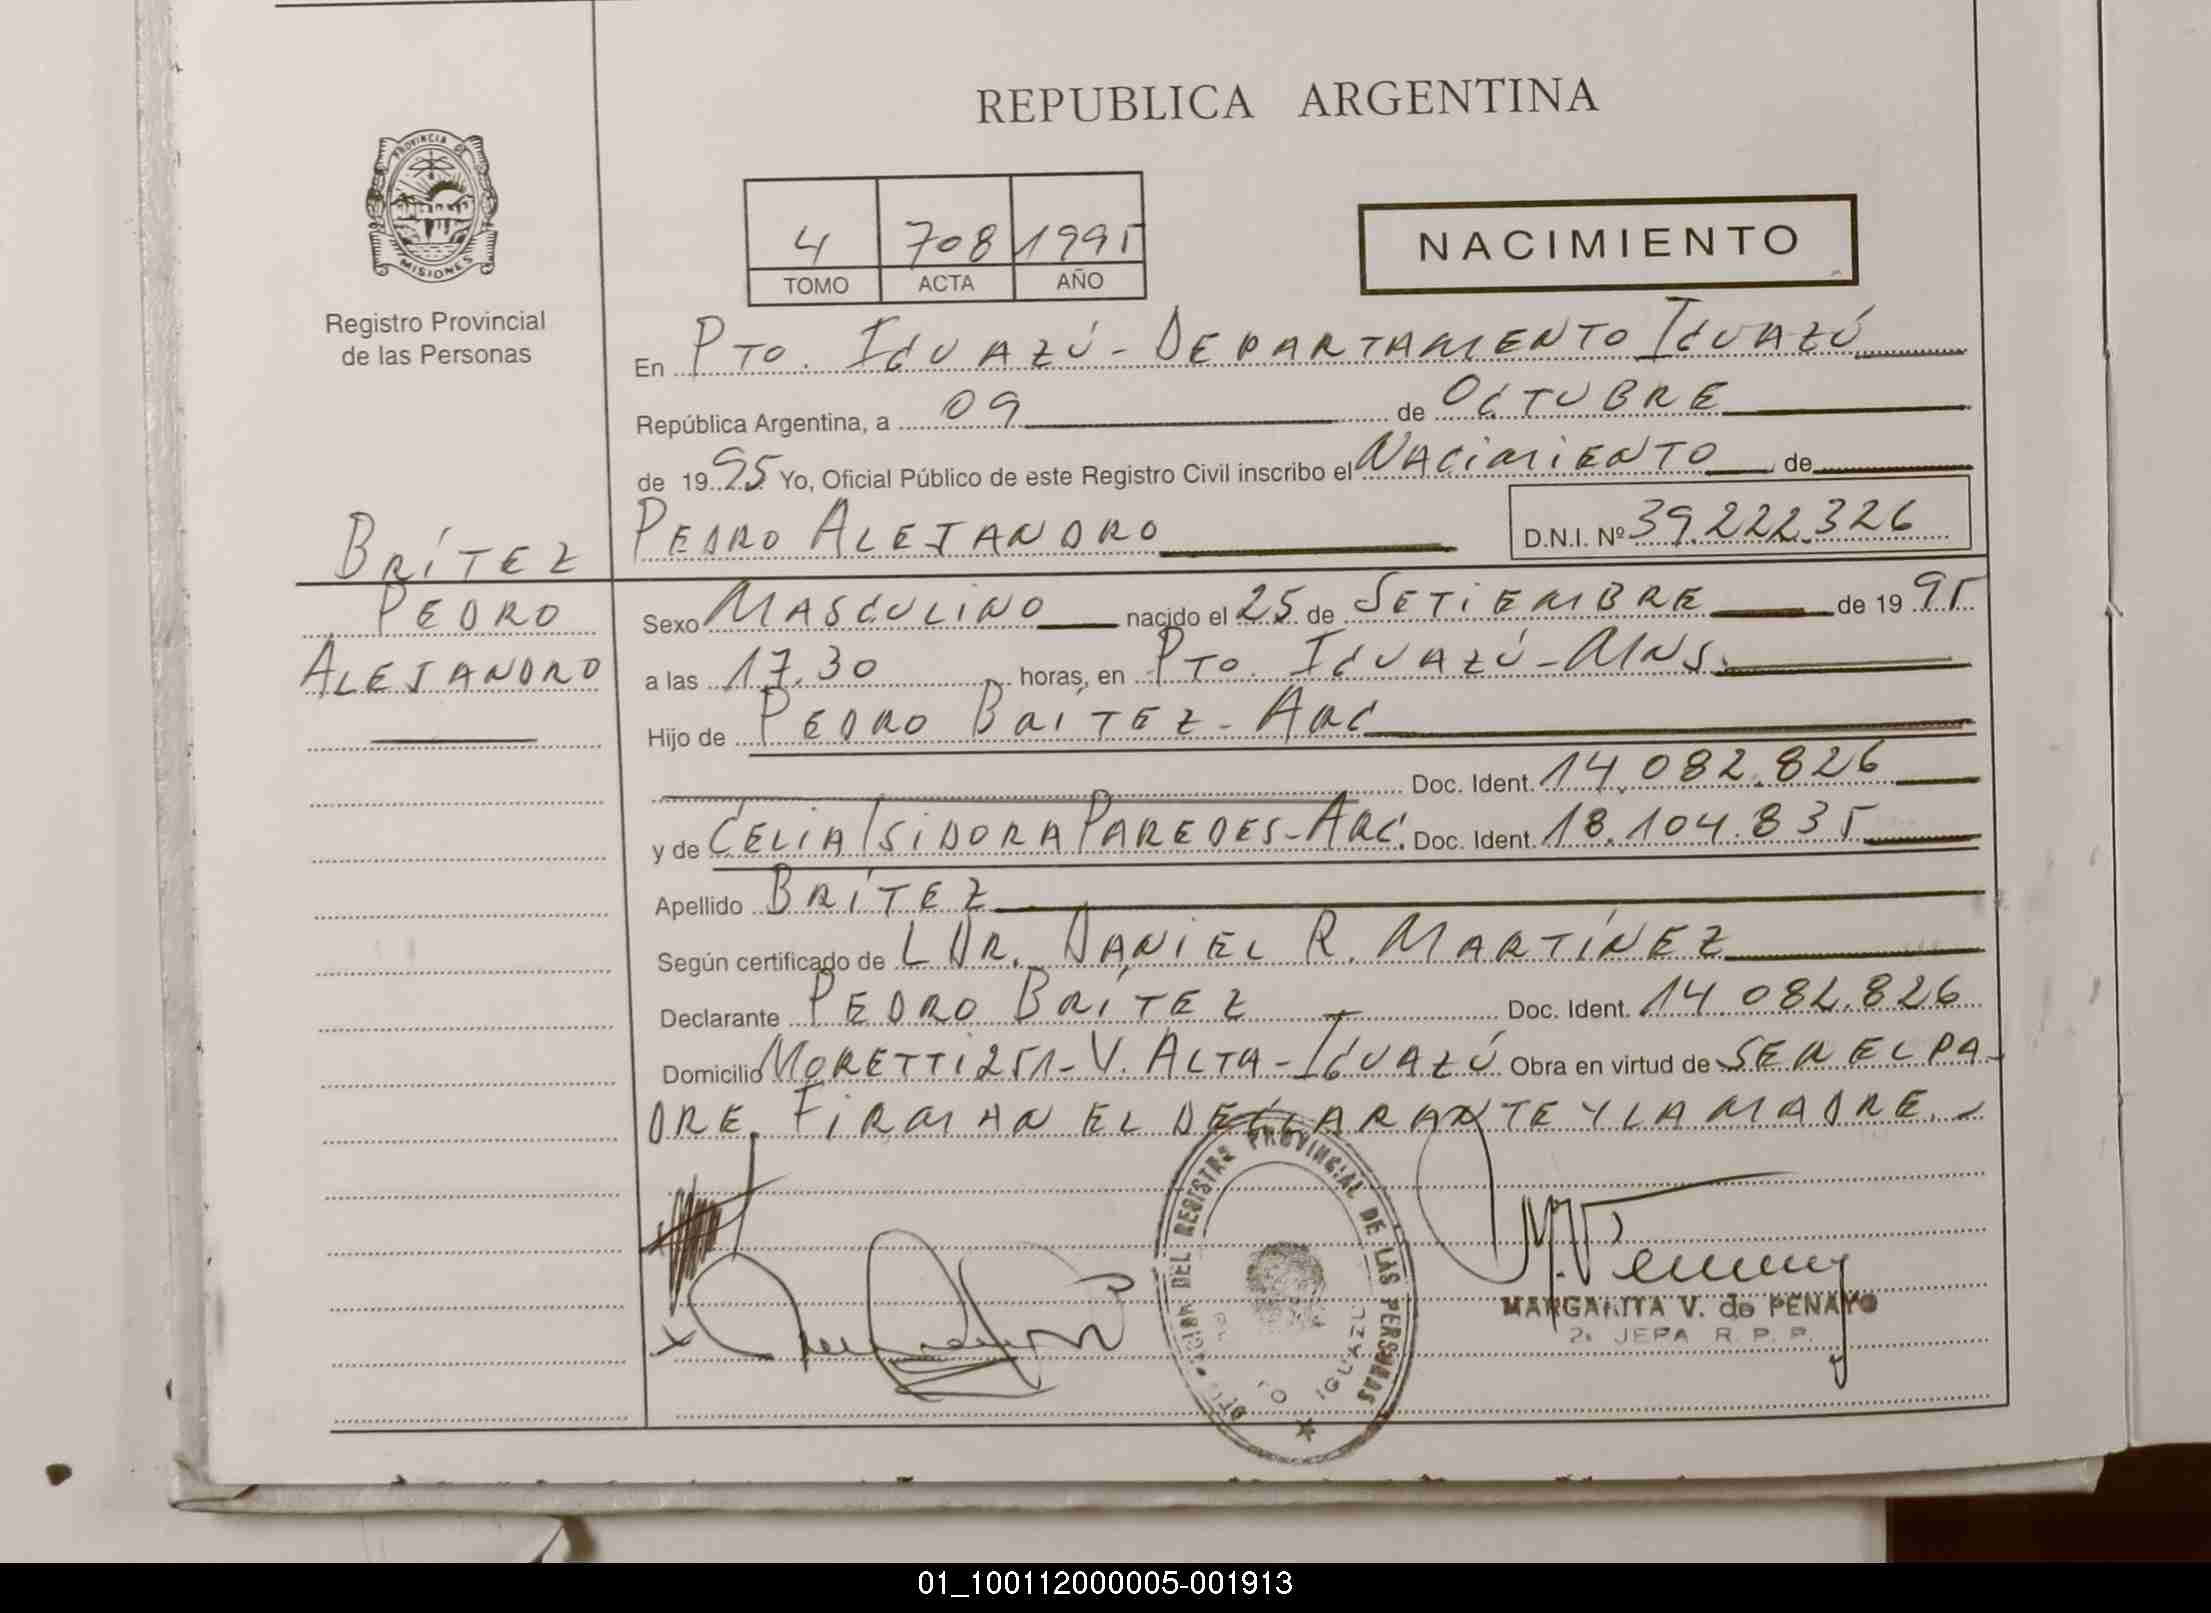 REPUBLICA ARGENTINA
PROVINCIA DE
MISIONES
Registro Provincial
de las Personas
4 708 1995
TOMO ACTA AÑO
NACIMIENTO
En PTO. IGUAZÚ - DEPARTAMENTO IGUAZÚ
República Argentina, a 09 de OCTUBRE
de 1995 Yo, Oficial Público de este Registro Civil inscribo el NACIMIENTO, de
PEDRO ALEJANDRO D.N.I. Nº 39.222.326
BRÍTEZ
PEDRO
ALEJANDRO
Sexo MASCULINO nacido el 25 de SETIEMBRE de 1995
a las 17.30 horas, en PTO. IGUAZÚ - MNS.
Hijo de PEDRO BRÍTEZ - ARG
Doc. Ident. 14.082.826
y de CELIA ISIDORA PAREDES - ARG. Doc. Ident. 18.104.835
Apellido BRÍTEZ
Según certificado de L DR. DANIEL R. MARTÍNEZ
Declarante PEDRO BRÍTEZ Doc. Ident. 14.082.826
Domicilio MORETTI 251 - V. ALTA - IGUAZÚ Obra en virtud de SER EL PA-
DRE. FIRMAN EL DECLARANTE Y LA MADRE.-
DEL REGISTRO PROVINCIAL DE LAS PERSONAS
IGUAZU
MARGARITA V. de PENAYO
2a JEFA R. P. P.
01_100112000005-001913